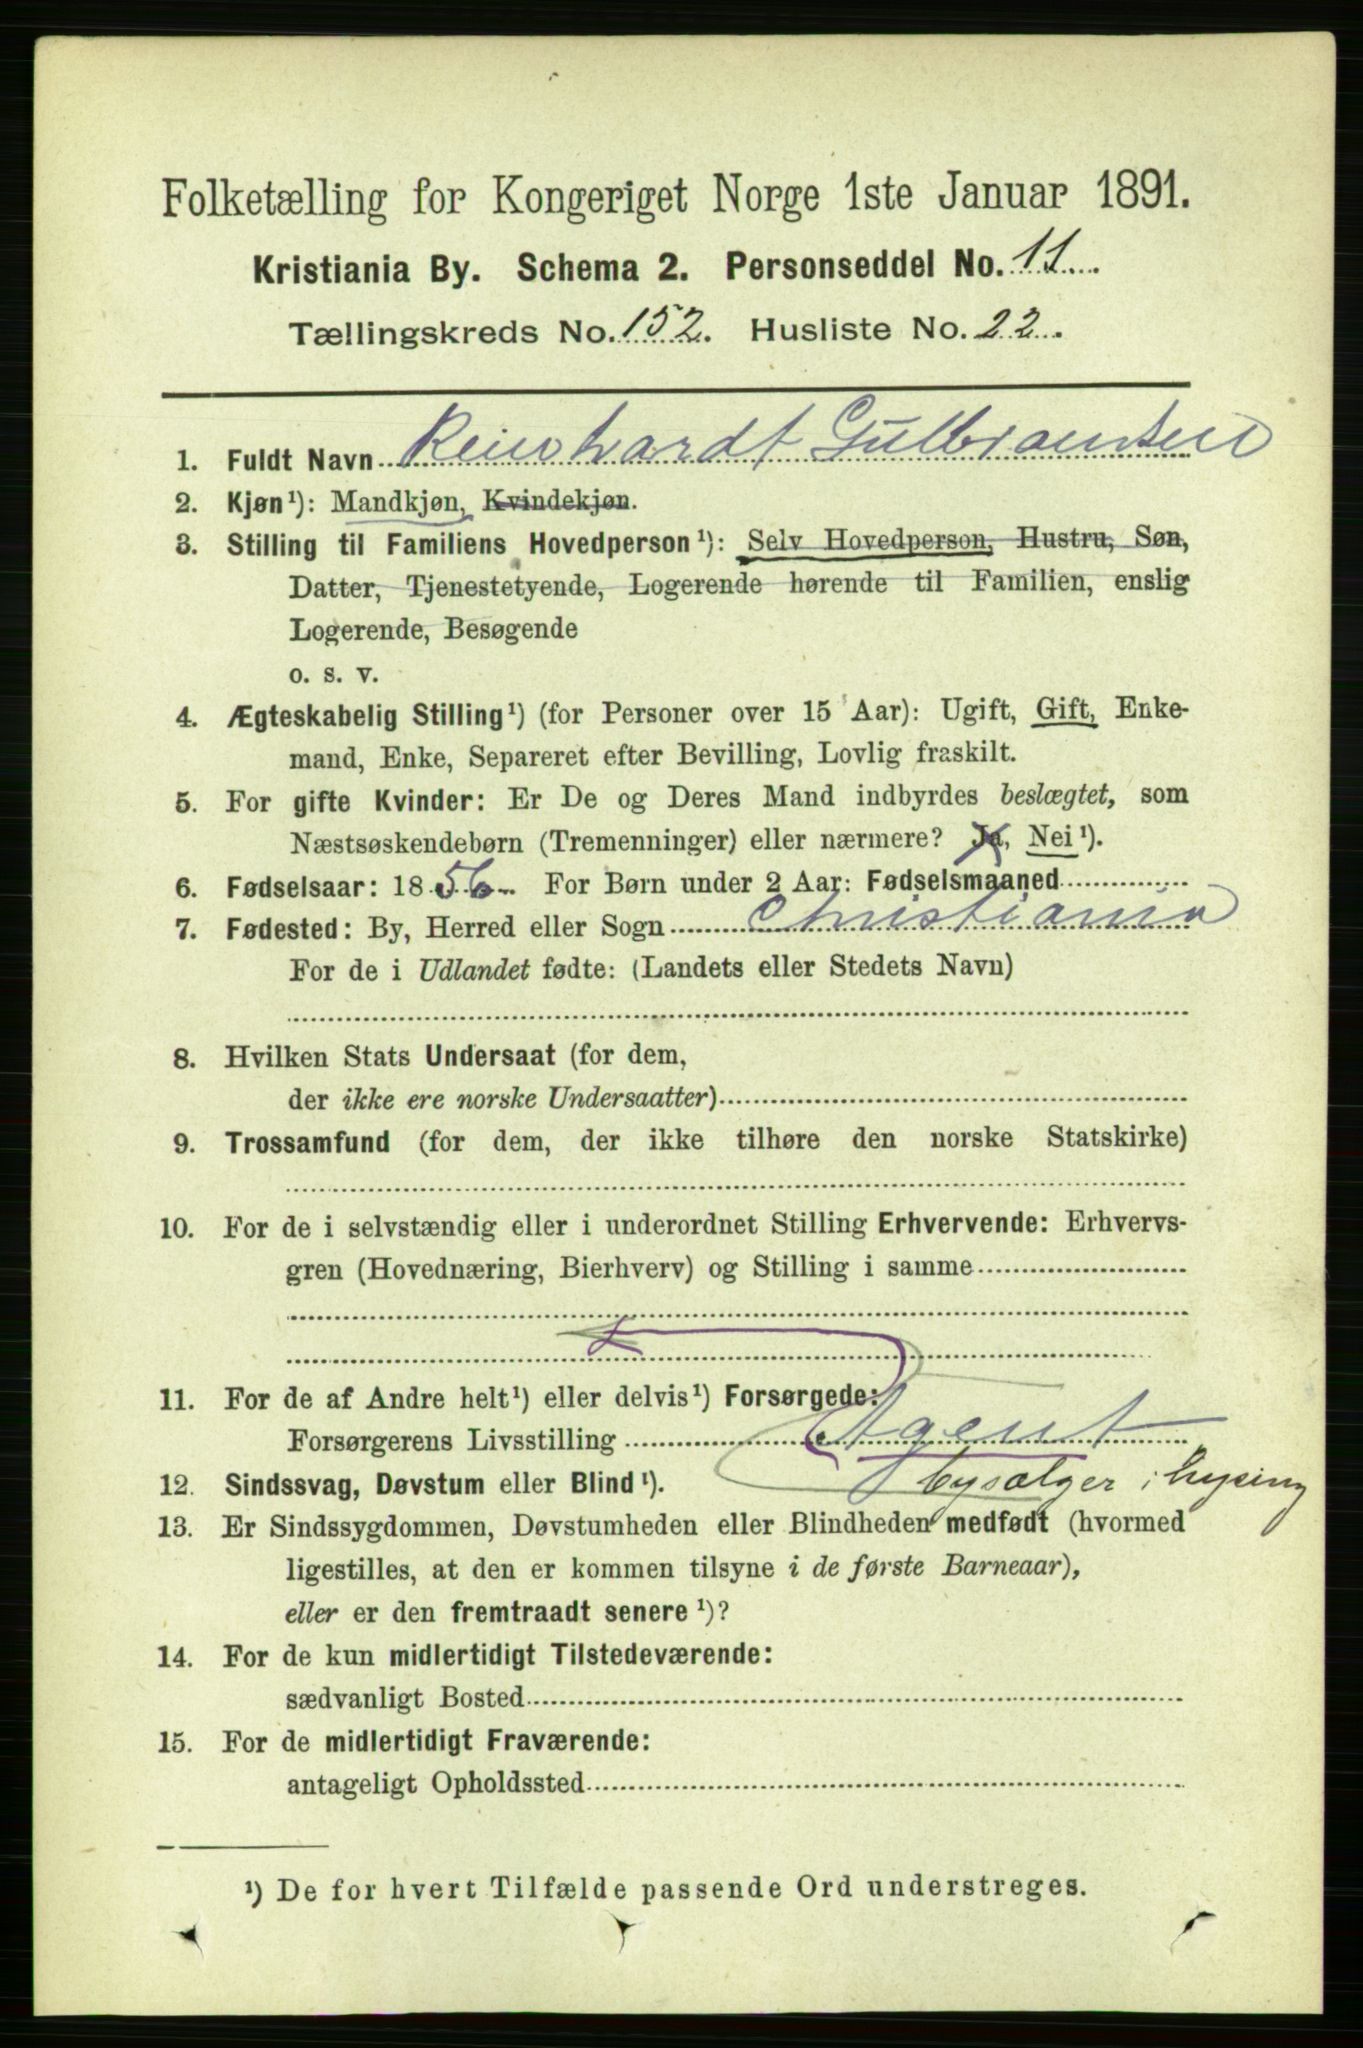 Folketælling for Kongeriget Norge 1ste Januar 1891.
Kristiania By. Schema 2. Personseddel No. 11
Tællingskreds No. 152. Husliste No. 22.
1. Fuldt Navn Reinhardt Gulbransen
2. Kjøn¹): Mandkjøn, Kvindekjøn.
3. Stilling til Familiens Hovedperson¹): Selv Hovedperson, Hustru, Søn,
Datter, Tjenestetyende, Logerende hørende til Familien, enslig
Logerende, Besøgende
o. s. v.
4. Ægteskabelig Stilling¹) (for Personer over 15 Aar): Ugift, Gift, Enke-
mand, Enke, Separeret efter Bevilling, Lovlig fraskilt.
5. For gifte Kvinder: Er De og Deres Mand indbyrdes beslægtet, som
Næstsøskendebørn (Tremenninger) eller nærmere? Ja, Nei¹).
6. Fødselsaar: 1856 For Børn under 2 Aar: Fødselsmaaned
7. Fødested: By, Herred eller Sogn Christiania
For de i Udlandet fødte: (Landets eller Stedets Navn)
8. Hvilken Stats Undersaat (for dem,
der ikke ere norske Undersaatter)
9. Trossamfund (for dem, der ikke tilhøre den norske Statskirke)
10. For de i selvstændig eller i underordnet Stilling Erhvervende: Erhvervs-
gren (Hovednæring, Bierhverv) og Stilling i samme
11. For de af Andre helt¹) eller delvis¹) Forsørgede:
Forsørgerens Livsstilling Agent
bysælger i
12. Sindssvag, Døvstum eller Blind¹).
13. Er Sindssygdommen, Døvstumheden eller Blindheden medfødt (hvormed
ligestilles, at den er kommen tilsyne i de første Barneaar),
eller er den fremtraadt senere¹)?
14. For de kun midlertidigt Tilstedeværende:
sædvanligt Bosted
15. For de midlertidigt Fraværende:
antageligt Opholdssted
¹) De for hvert Tilfælde passende Ord understreges.